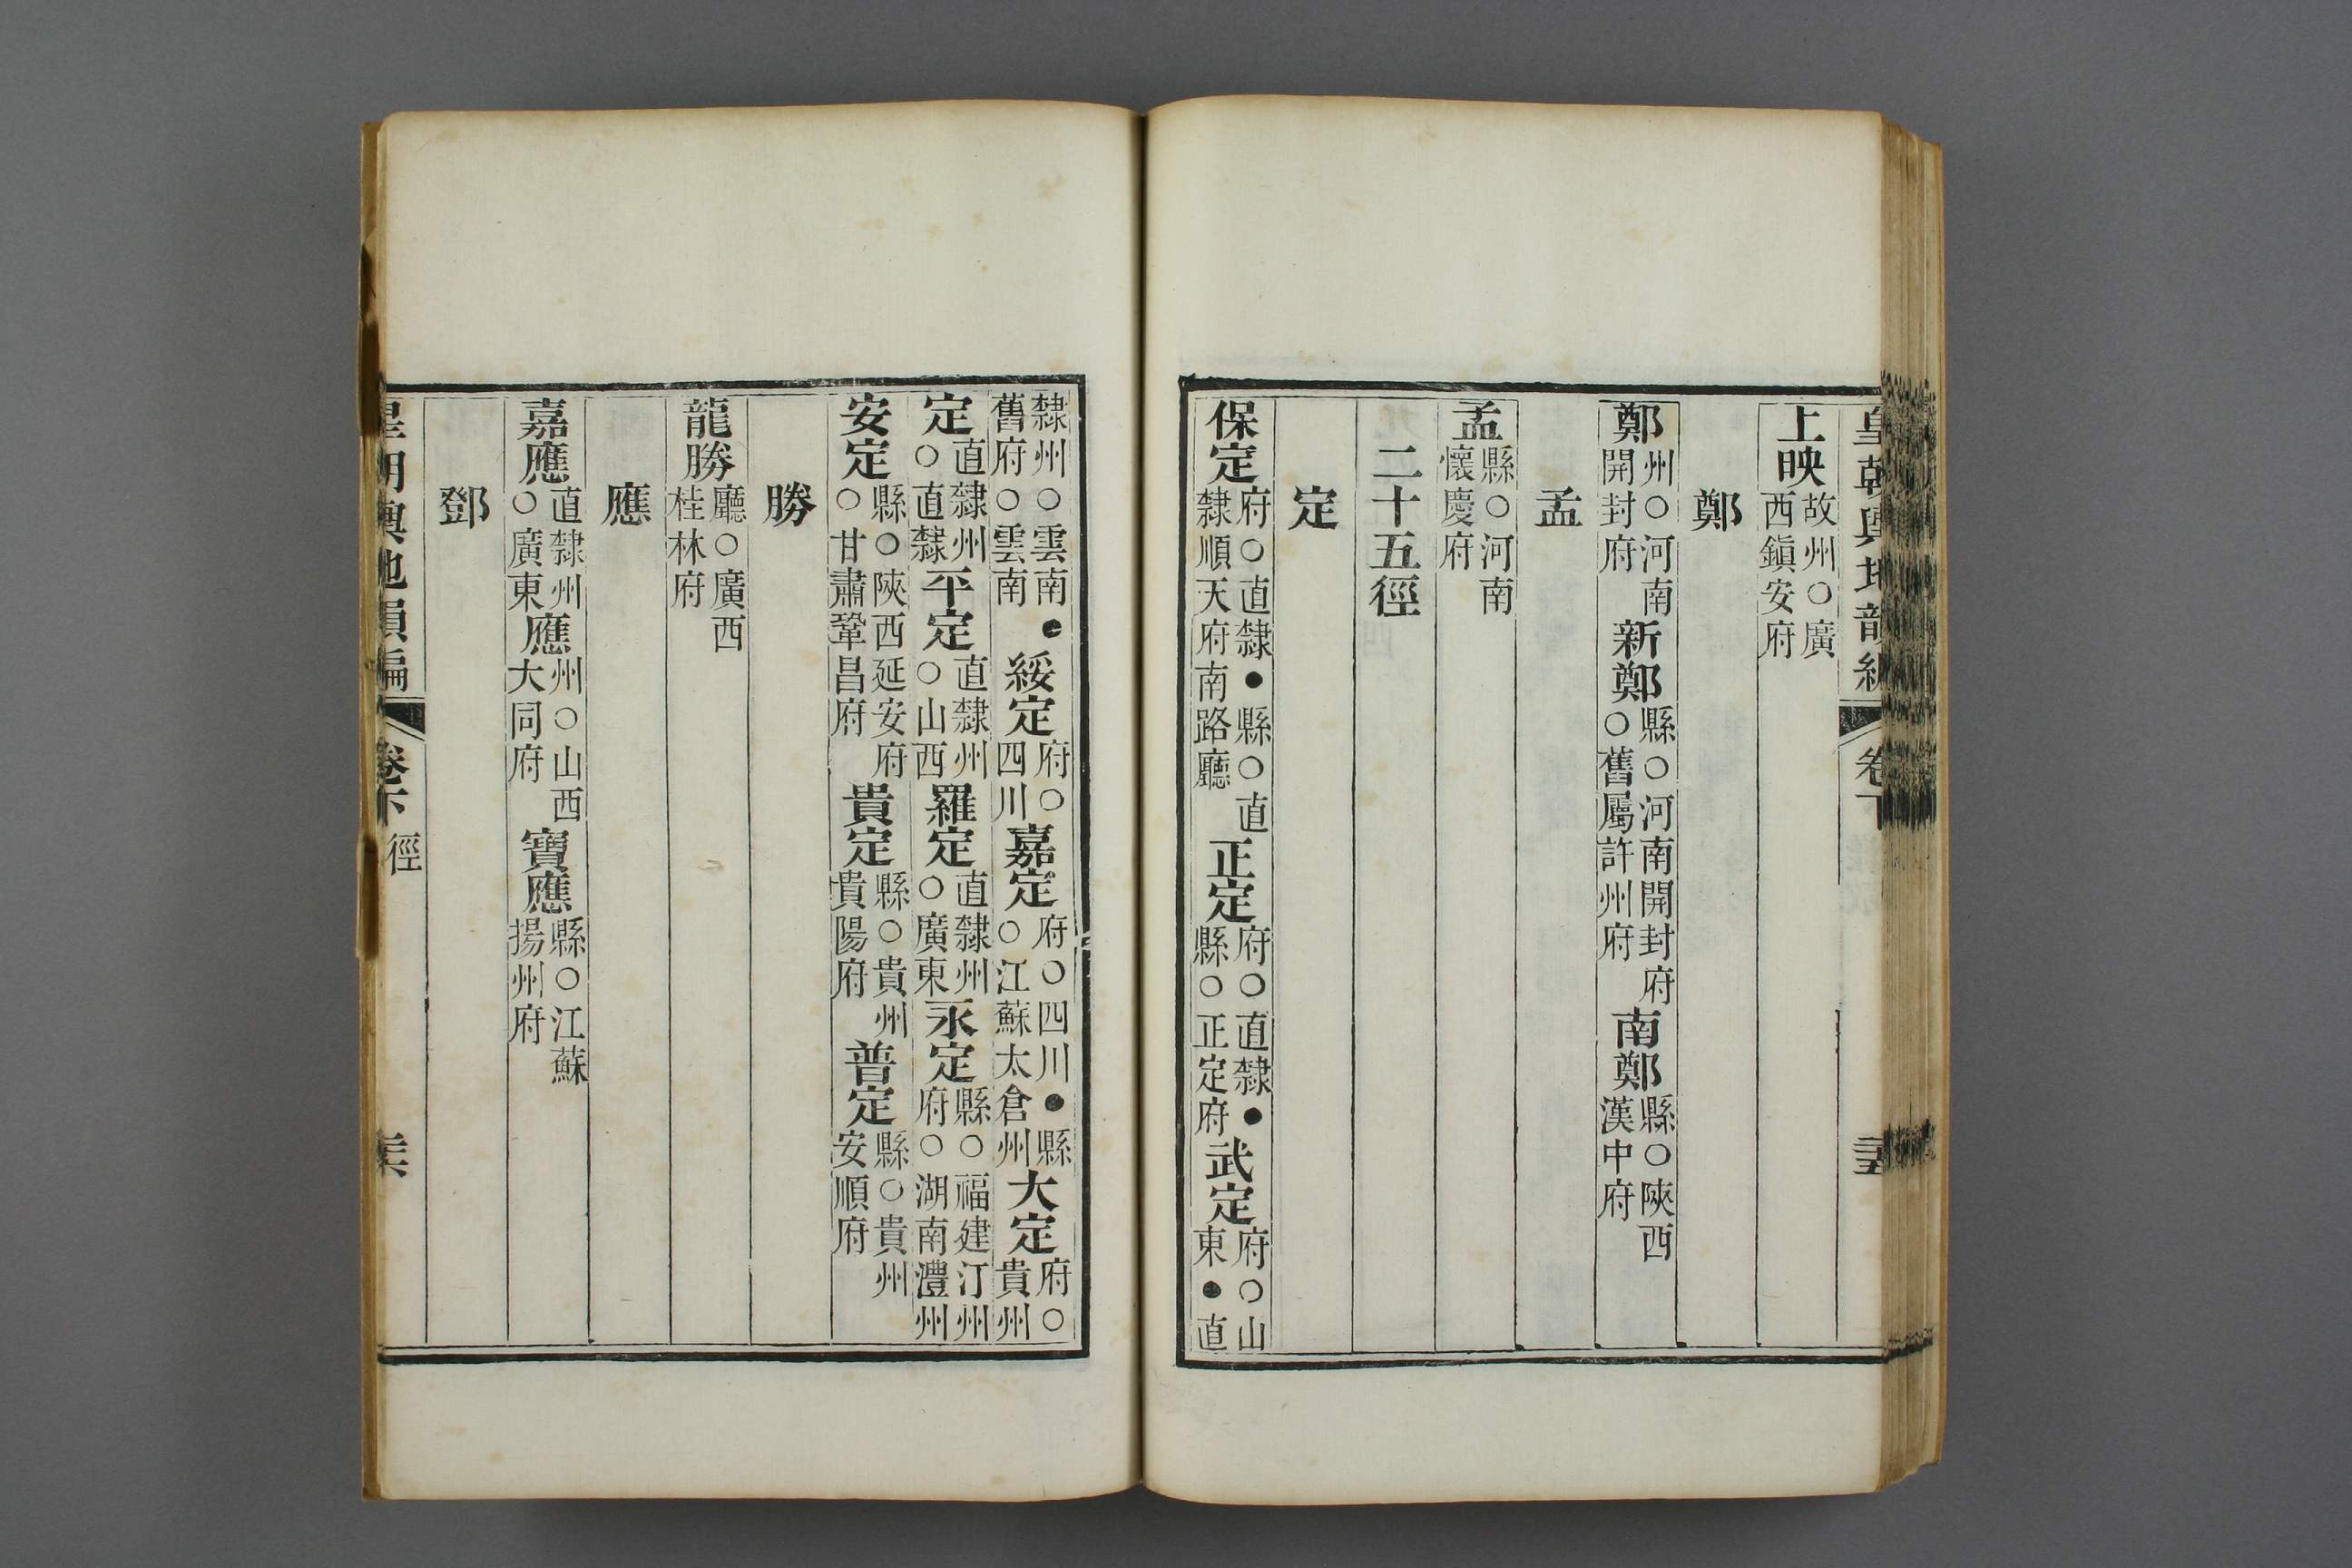 皇朝輿地韻編 卷下
上映故州○廣西鎮安府
鄭
鄭州○河南開封府 新鄭縣○河南開封府○舊屬許州府 南鄭縣○陝西漢中府
孟
孟縣○河南懷慶府
二十五徑
定
保定府○直隸●縣○直隸順天府南路廳 正定府○直隸●縣○正定府 武定府○山東●直
隸州○雲南●舊府○雲南 綏定府○四川 嘉定府○四川●縣○江蘇太倉州 大定府○貴州
定直隸州○直隸 平定直隸州○山西 羅定直隸州○廣東 永定縣○福建汀州府○湖南澧州
安定縣○陝西延安府○甘肅鞏昌府 貴定縣○貴州貴陽府 普定縣○貴州安順府
勝
龍勝廳○廣西桂林府
應
嘉應直隸州○廣東 應州○山西大同府 寶應縣○江蘇揚州府
鄧
皇朝輿地韻編 卷下 徑